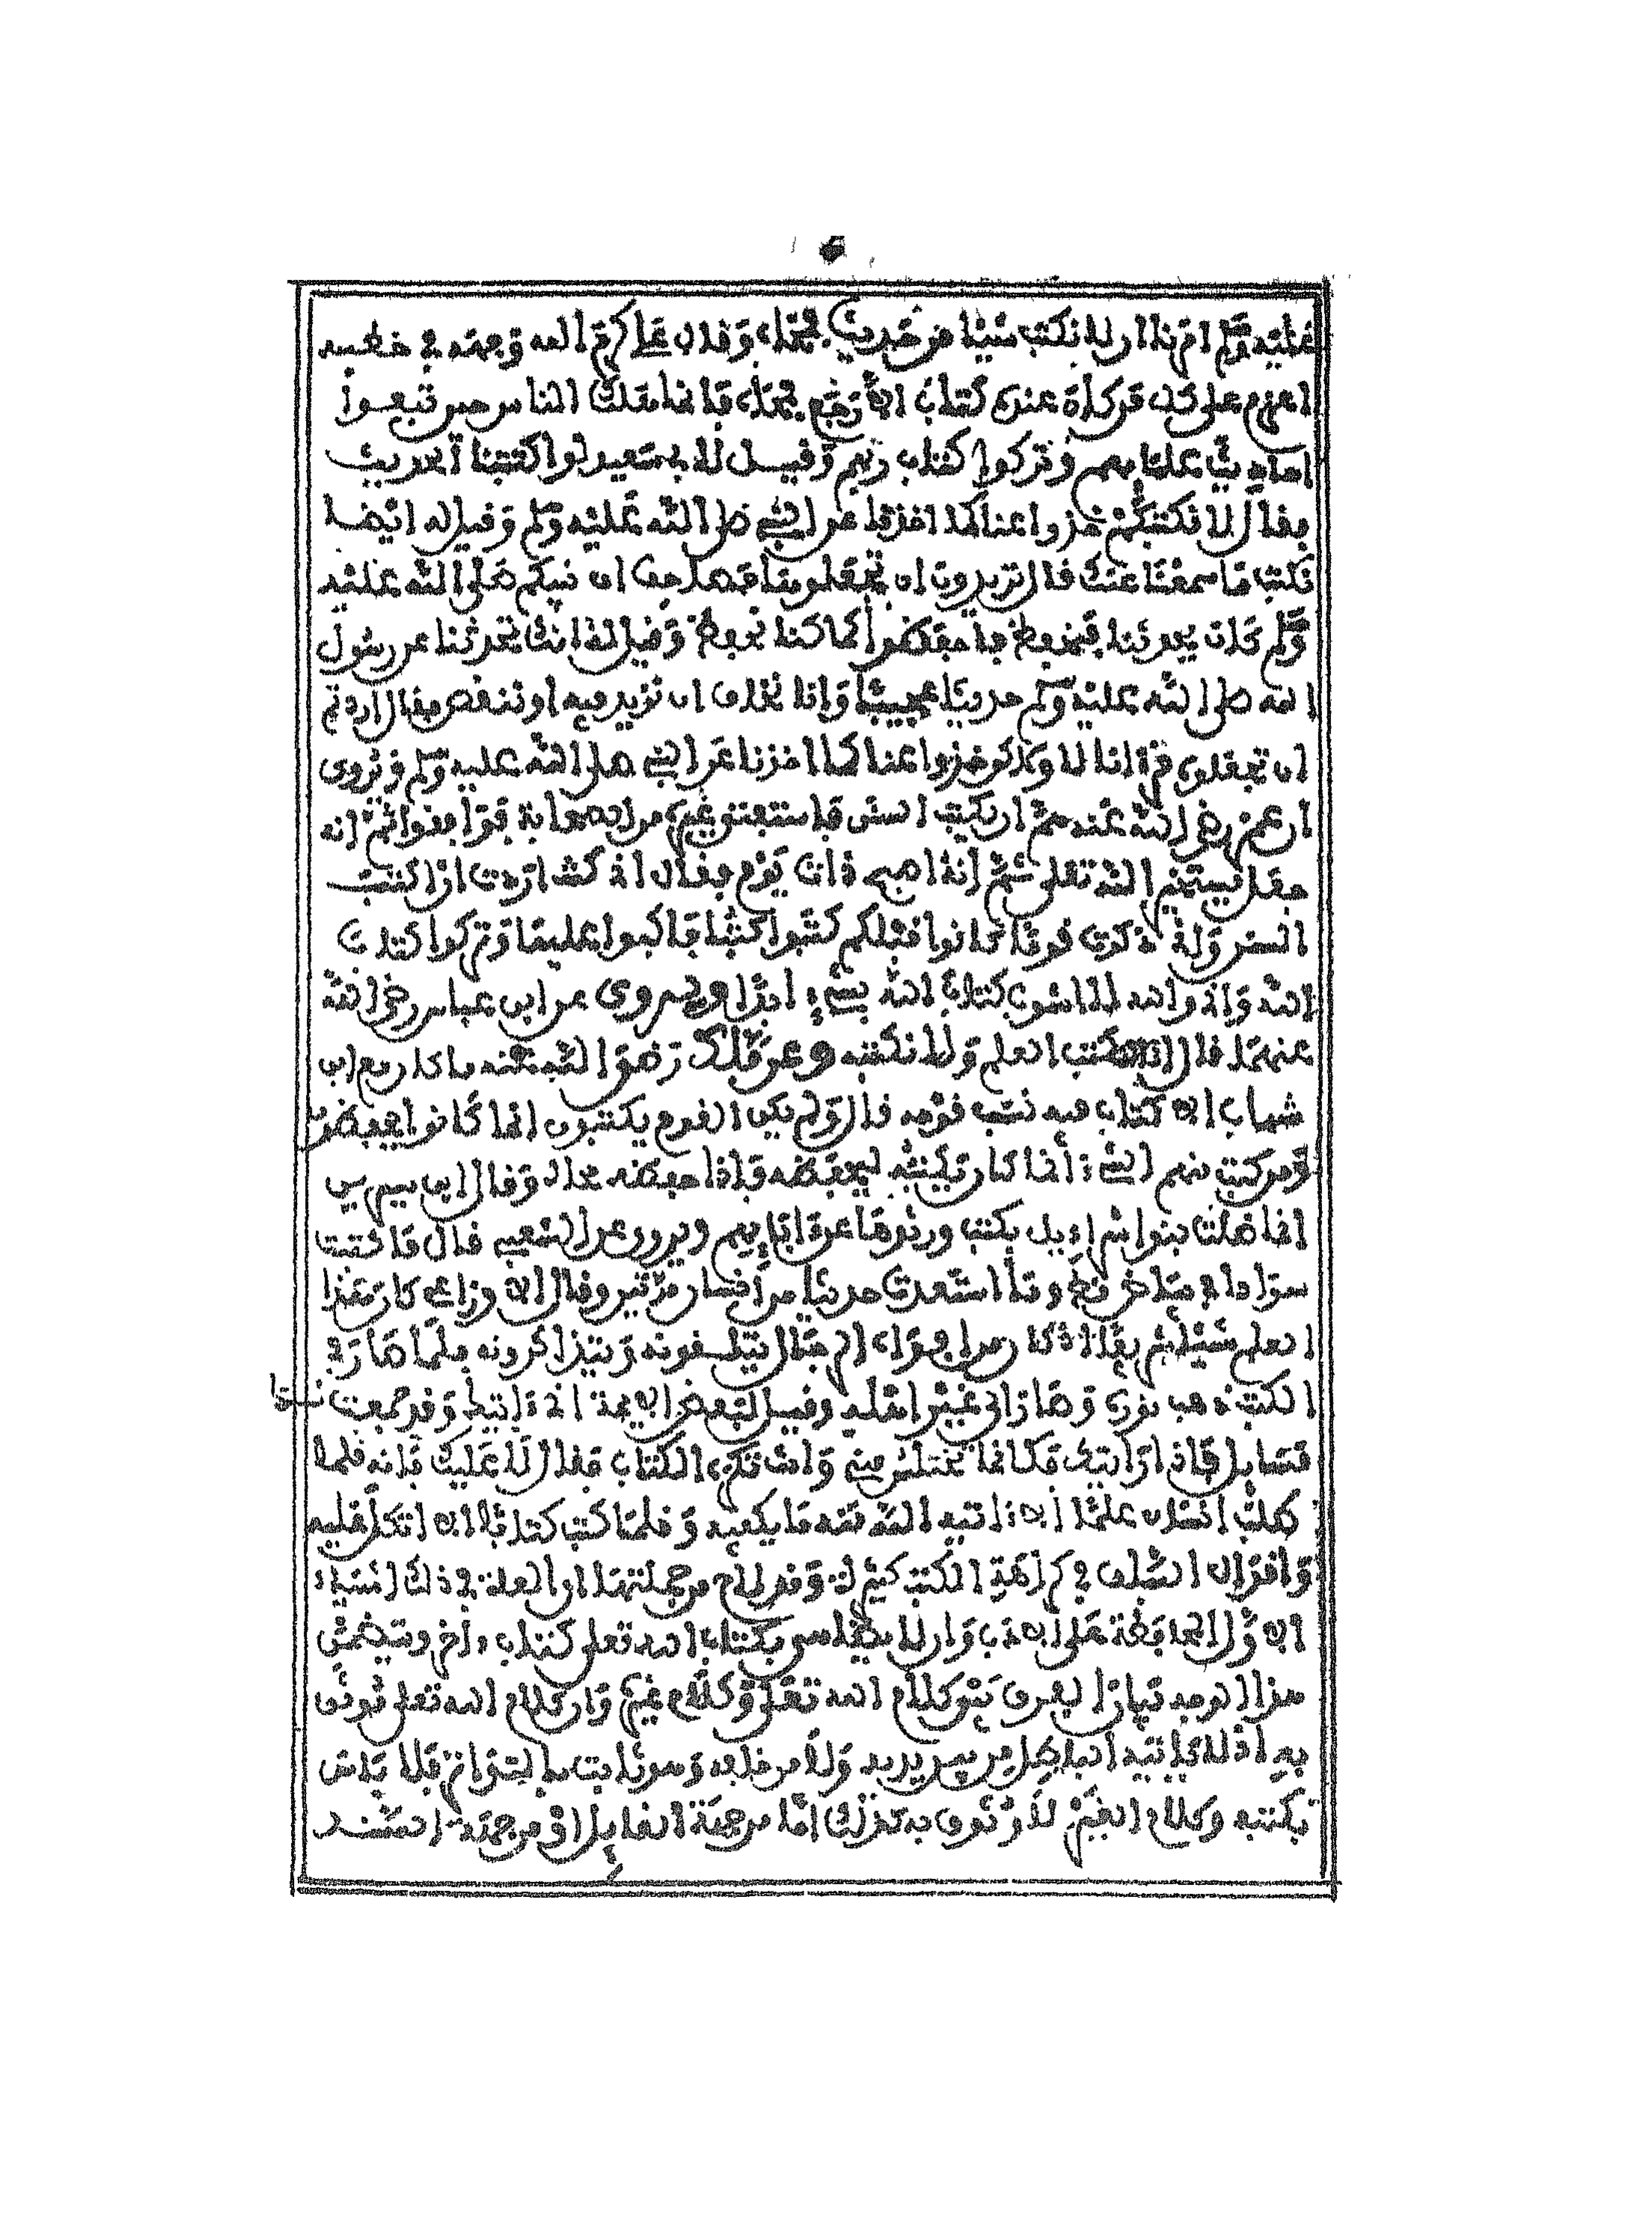 عليه وسلم امرنا ان لا نكتب شيئا من حديثه فمحاه وقال علي كرم الله وجهه في خطبته
اعزم على كل من كان عنده كتاب الا رجع فمحاه فانما هلك الناس حين تبعوا
احاديث علمائهم وتركوا كتاب ربهم وقيل لابي سعيد لو اكتتبنا الحديث
فقال لا نكتبكم خذوا عنا كما اخذنا عن النبي صلى الله عليه وسلم وقيل له ايضا
نكتب ما سمعنا عنك قال تريدون ان تجعلوها مصاحف ان نبيكم صلى الله عليه
وسلم كان يحدثنا فنحفظ فاحفظوا كما كنا نحفظ وقيل له انك تحدثنا عن رسول
الله صلى الله عليه وسلم حديثا عجيبا وانا نخاف ان نزيد فيه او ننقص فقال اردتم
ان تجعلوه قرءانا لا ولكن خذوا عنا كما اخذنا عن النبي صلى الله عليه وسلم ويروى
ان عمر رضي الله عنه هم ان يكتب السنن فاستفتى غيره من الصحابة فوافقوا ثم انه
جعل يستخير الله تعلى شهرا ثم انه اصبح ذات يوم فقال اني كنت اردت ان اكتب
السنن واني ذكرت قوما كانوا قبلكم كتبوا كتبا فاكبوا عليها وتركوا كتاب
الله واني والله لا اشوب كتاب الله بشيء ابدا ويروى عن ابن عباس رضي الله
عنهما قال انا لا نكتب العلم ولا نكتبه وعن مالك رضي الله عنه ما كان مع ابن
شهاب الا كتاب فيه نسب قومه قال ولم يكن القوم يكتبون انما كانوا يحفظون
ومن كتب منهم الشيء انما كان يكتبه ليحفظه فاذا حفظه محاه وقال ابن سيرين
انما ضلت بنوا اسراءيل بكتب ورثوها عن ءابائهم ويروى عن الشعبي قال ما كتبت
سوادا في بيضاء قط وما استعدت حديثا من انسان مرتين وقال الاوزاعي كان هذا
العلم شيئا شريفا اذ كان من افواه الرجال يتلقونه ويتذاكرونه فلما صار في
الكتب ذهب نوره وصار الى غير اهله وقيل لبعض الايمة اني ءاتيك وقد جمعت
مسايل فاذا رايتك فكانما تختلس مني وانت تكره الكتاب فقال لا عليك فانه قلما
طلب انسان علما الا ءاتيه الله منه ما يكفيه وقلما كتب كتابا الا اتكل عليه
واقوال السلف في كراهة الكتب كثيرة وقد لاح من جملتها ان العلة في ذلك اشياء
الاول المحافظة على الادب وان لا يضاهى بكتاب الله تعلى كتاب ءاخر ويتضمن
هذا الوجه تبيان الفرق بين كلام الله تعلى وكلام غيره وان كلام الله تعلى موثوق
به اذ لا ياتيه الباطل من بين يديه ولا من خلفه وهو ثابت بالتواتر فلا باس
بكتبه وكلام الغير لا وثوق به كذلك اما من جهة القايل او من جهة السند